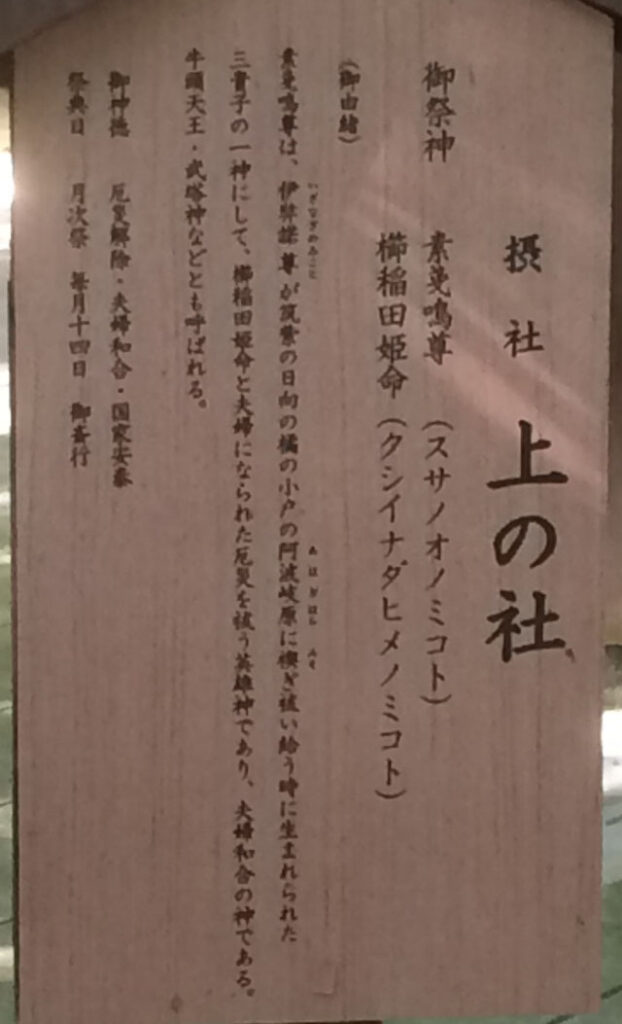 摂社 上の社
御祭神 素戔鳴尊(スサノオノミコト)
櫛稲田姫命(クシイナダヒメノミコト)
(御由緒)
素戔鳴尊は、伊弉諾尊が筑紫の日向の橘の小戸の阿波岐原に禊ぎ祓い給う時に生まれられた
いざなぎのみこと
あはぎはら
みそ
三貴子の一神にして、櫛稲田姫命と夫婦になられた厄災を祓う英雄神であり、夫婦和合の神である。
牛頭天王・武塔神などとも呼ばれる。
御神徳 厄災解除・夫婦和合・国家安泰
祭典日 月次祭 毎月十四日 御斎行